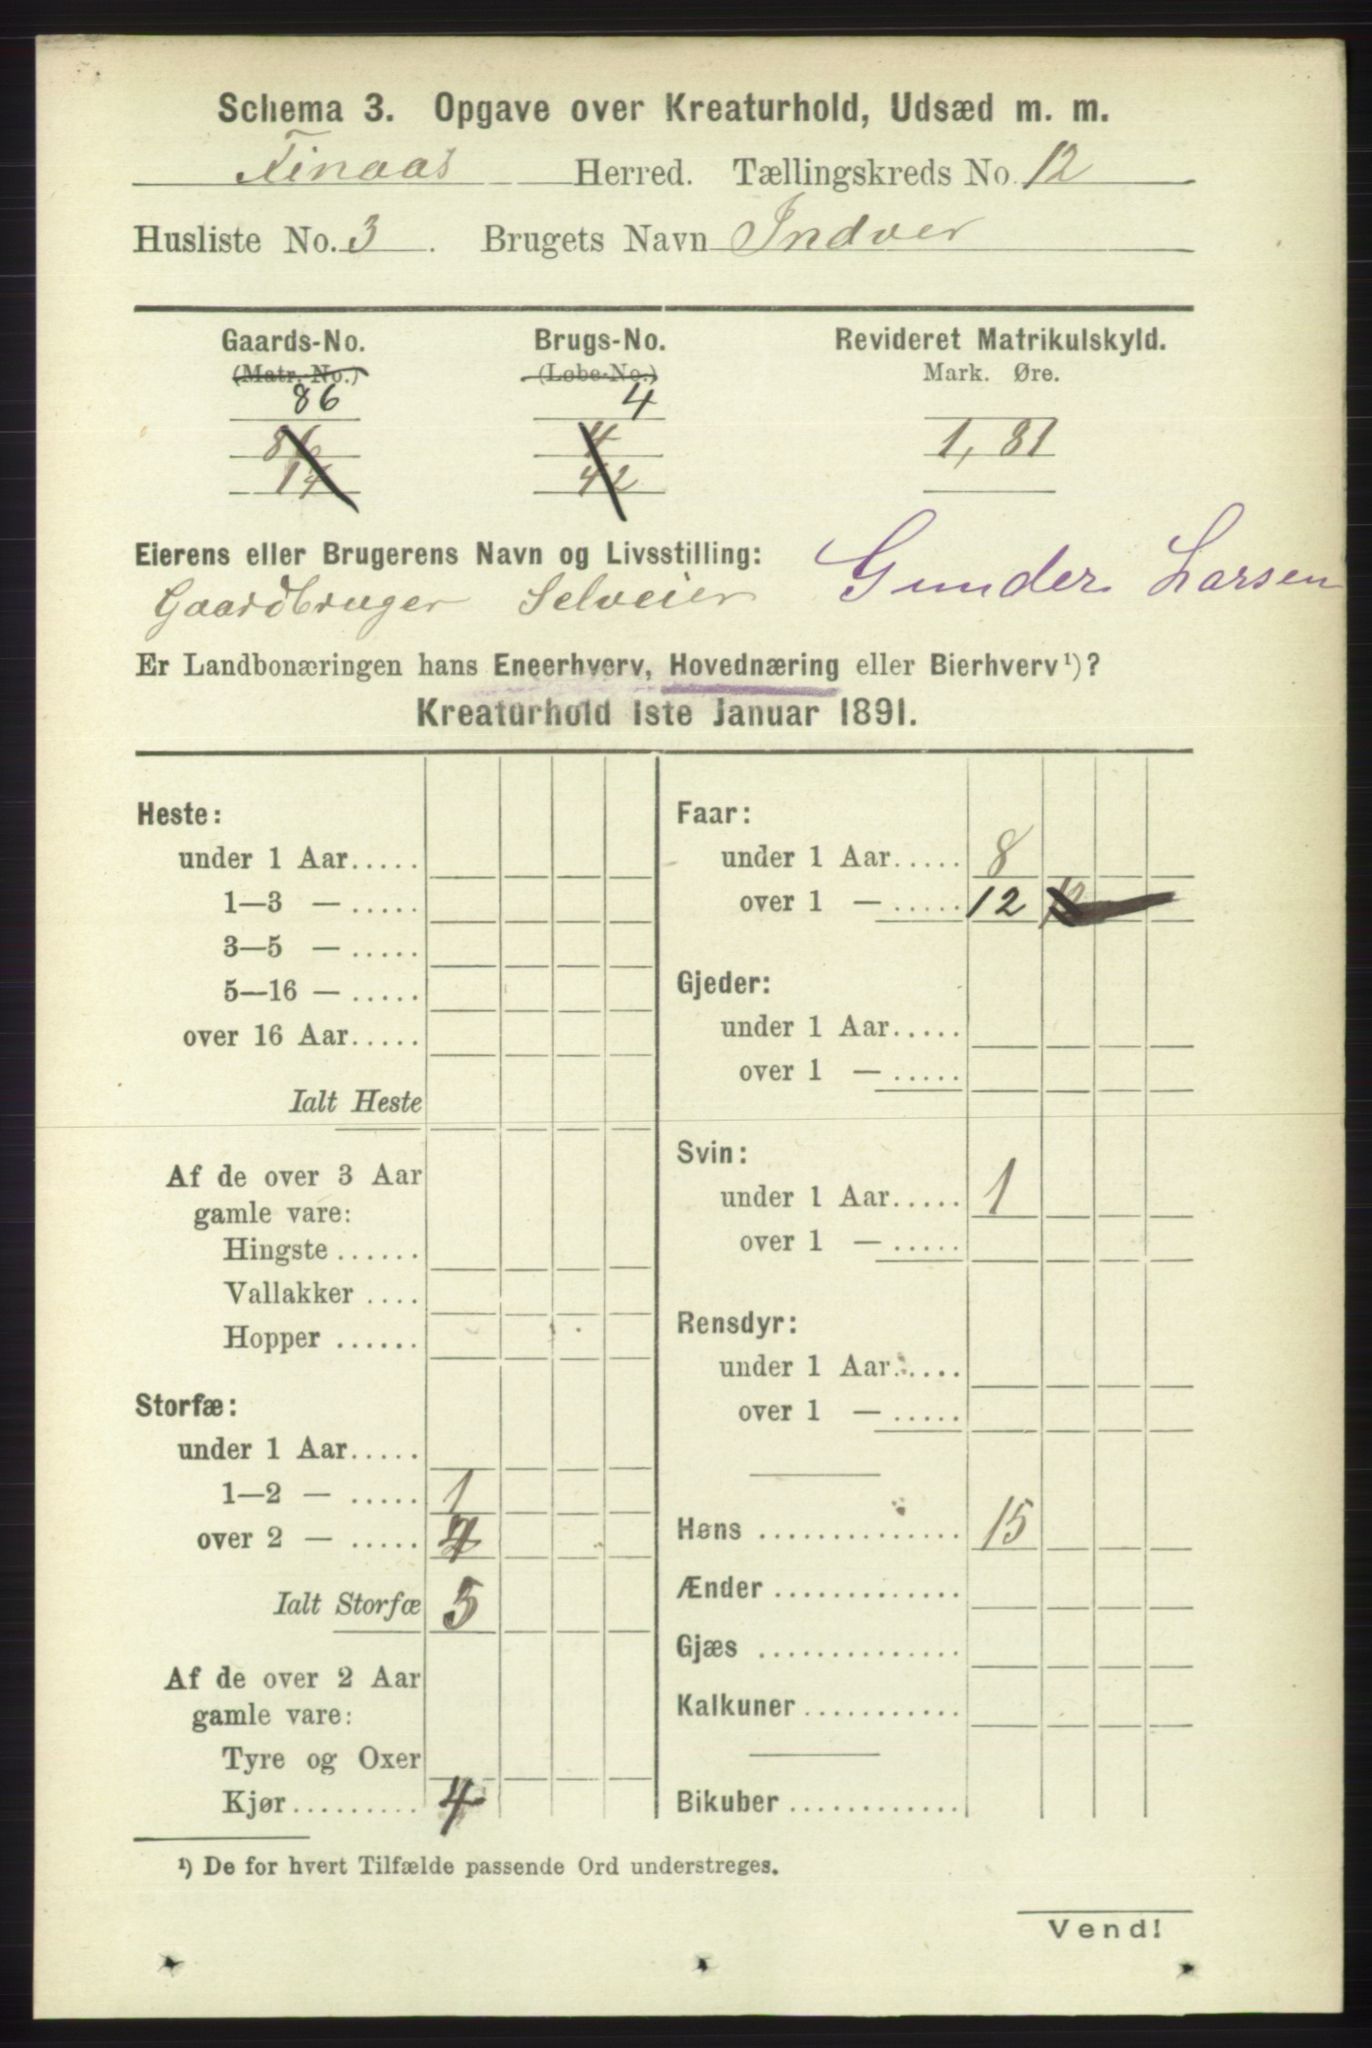 Schema 3. Opgave over Kreaturhold, Udsæd m. m.
Finaas Herred. Tællingskreds No. 12
Husliste No. 3. Brugets Navn Indver
Gaards-No. Brugs-No. Revideret Matrikulskyld.
(Matr.-No.) (Løbe-No.) Mark. Øre.
86 4
86 4 1,81
17 42
Eierens eller Brugerens Navn og Livsstilling: Gunder Larsen
Gaardbruger Selveier
Er Landbonæringen hans Eneerhverv, Hovednæring eller Bierhverv¹)?
Kreaturhold 1ste Januar 1891.
Heste:
under 1 Aar.....
1—3 — .....
3—5 — .....
5—16 — .....
over 16 Aar.....
Ialt Heste
Af de over 3 Aar
gamle vare:
Hingste ......
Vallakker ....
Hopper ......
Storfæ:
under 1 Aar.....
1—2 — ..... 1
over 2 — ..... 4
Ialt Storfæ 5
Af de over 2 Aar
gamle vare:
Tyre og Oxer
Kjør......... 4
Faar:
under 1 Aar..... 8
over 1 — ..... 12 12
Gjeder:
under 1 Aar.....
over 1 — .....
Svin:
under 1 Aar..... 1
over 1 — .....
Rensdyr:
under 1 Aar.....
over 1 — .....
Høns .............. 15
Ænder .............
Gjæs ..............
Kalkuner ...........
Bikuber ............
¹) De for hvert Tilfælde passende Ord understreges.
Vend!